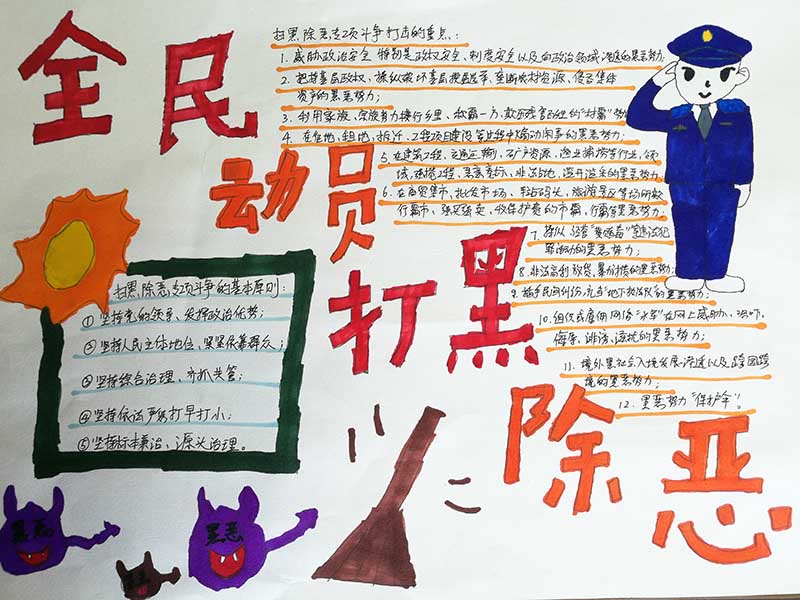 全民
动员
打黑
除恶
扫黑除恶专项斗争打击的重点:
1. 威胁政治安全特别是政权安全、制度安全以及向政治领域渗透的黑恶势力;
2. 把持基层政权、操纵破坏基层换届选举、垄断农村资源、侵吞集体
资产的黑恶势力;
3. 利用家族、宗族势力横行乡里、称霸一方、欺压残害百姓的"村霸"势力
4. 在征地、租地、拆迁、工程项目建设等过程中煽动闹事的黑恶势力;
5. 在建筑工程、交通运输、矿产资源、渔业捕捞等行业、领
域,强揽工程、恶意竞标、非法占地、滥开滥采的黑恶势力;
6. 在商贸集市、批发市场、车站码头、旅游景区等场所欺
行霸市、强买强卖、收保护费的市霸、行霸等黑恶势力;
7. 操纵、经营"黄赌毒"等违法犯
罪活动的黑恶势力;
8. 非法高利放贷、暴力讨债的黑恶势力;
9. 插手民间纠纷,充当"地下执法队"的黑恶势力;
10. 组织或雇佣网络"水军"在网上威胁、恐吓、
侮辱、诽谤、滋扰的黑恶势力;
11. 境外黑社会入境发展渗透以及跨国跨
境的黑恶势力;
12. 黑恶势力"保护伞"。
扫黑除恶专项斗争的基本原则:
①坚持党的领导、发挥政治优势;
②坚持人民主体地位、紧紧依靠群众;
③坚持综合治理、齐抓共管;
④坚持依法严惩、打早打小;
⑤坚持标本兼治、源头治理。
黑恶
黑恶